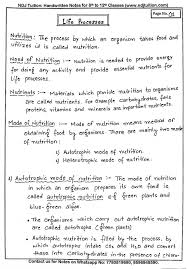 NDJ Tuition: Handwritten Notes for 6th to 12th Classes (www.ndjtuition.com)
Page No. 01
Life Processes
Nutrition: The process by which an organism takes food and
utilizes it is called nutrition.
Need of Nutrition - Nutrition is needed to provide energy
for doing any activity and provide essential nutrients for
life processes.
Nutrients - Materials which provide nutrition to organisms
are called nutrients. For example carbohydrates, fats
proteins, vitamins and minerals are important nutrients
Mode of Nutrition - Mode of nutrition means method of
obtaining food by organisms. There are mainly two modes
of nutrition.
a) Autotrophic mode of nutrition
b) Heterotrophic mode of nutrition.
a) Autotrophic mode of nutrition - The mode of nutrition
in which an organism prepares its own food is
called autotrophic nutrition eg. green plants and
blue-green algae.
• The organisms which carry out autotrophic nutrition
are called autotrophs (green plants)
• Autotrophic nutrition is fulfilled by the process, by
which autotrophs intake CO₂ and H₂O and convert
these into Carbohydrates in the presence of chlorophyll
Contact us for Notes on Whatsapp No: